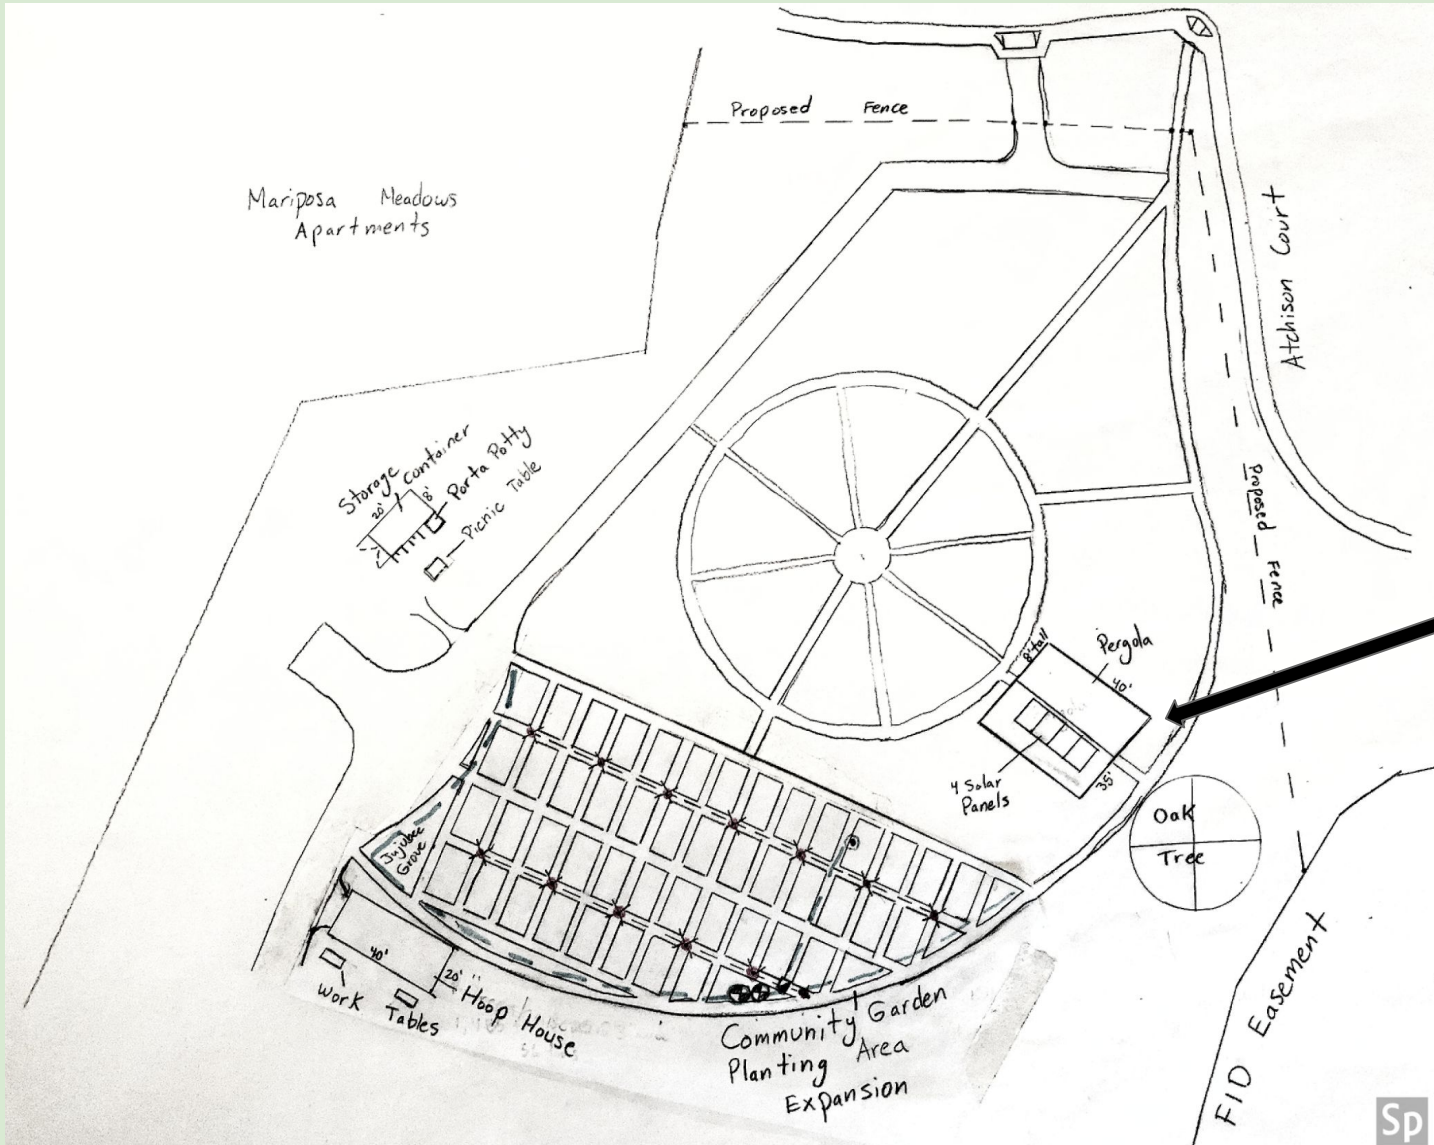 Proposed Fence
Mariposa Meadows
Apartments
Atchison Court
Storage
Container
20'
8'
Porta Potty
Picnic Table
Proposed Fence
8' tall
Pergola
40'
35'
4 Solar
Panels
Oak
Tree
Jujubee
Grove
40'
20'
Work
Tables
Hoop House
Community Garden
Planting Area
Expansion
FID Easement
Sp